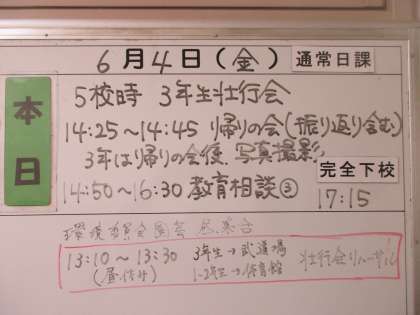 6月4日(金) 通常日課
本日
5校時 3年生壮行会
14:25~14:45 帰りの会(振り返り含む)
3年は帰りの会後、写真撮影
完全下校
14:50~16:30 教育相談③ 17:15
環境委員会
13:10~13:30 3年生→武道場 壮行会リハーサル
(昼休み) 1-2年生→体育館